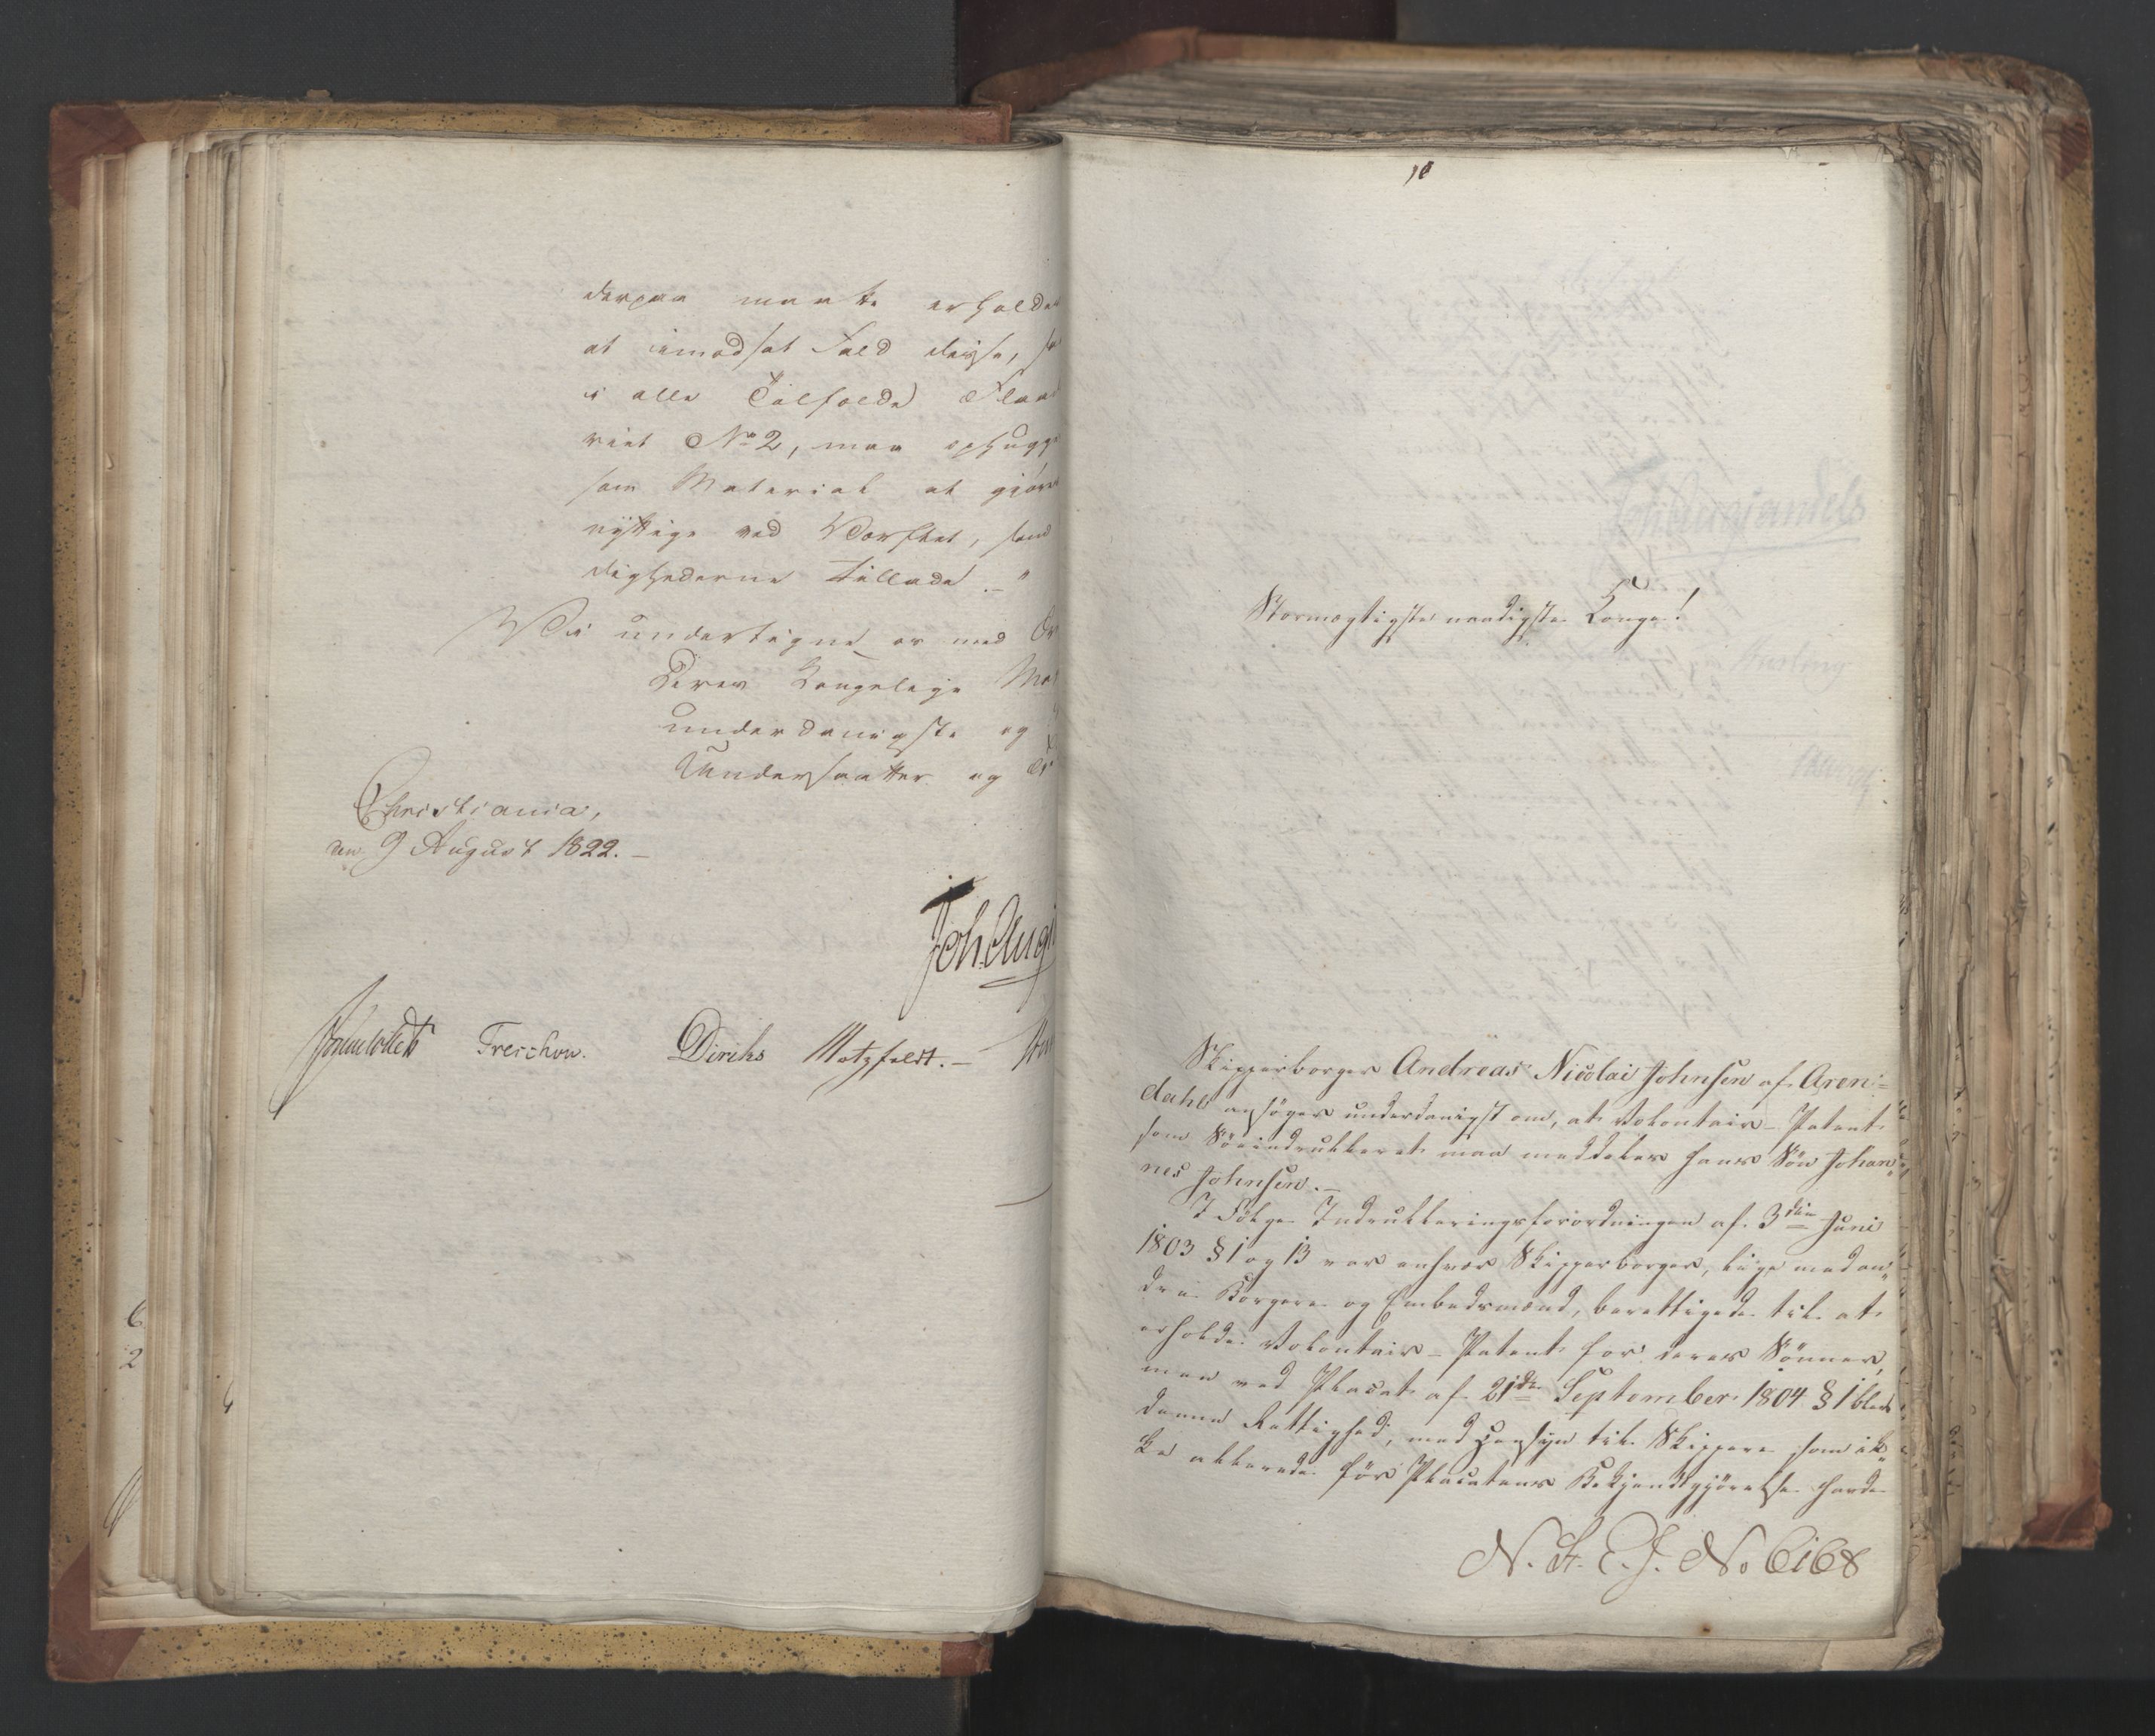 derpaa maatte erholdes
at imodsat Fald disse, so
i alle Tilfælde Flaad
riet No 2, maa ophugge
som Material at giøre
nyttige ved Værftet, som
dighederne tillade. — "
Vi undertegne os med
Deres Kongelige Ma
underdanigste og
Undersaatter og
Christiania,
den 9 August 1822. —
Joh. Aug
Treschow. Diriks Motzfeldt. —
6
2
10
Stormægtigste naadigste Konge!
Skipperborger Andreas Nicolai Johnsen af Aren=
dahl ansøger underdanigst om, at Volontair-Patent
som Søeindrulleret maa meddeles hans Søn Johan"
nes Johnsen. —
I Følge Indrulleringsforordningen af 3die Juni
1803 § 1 og 13 var enhver Skipperborger, liige med an"
dre Borgere og Embedsmænd, berettigede til at
erholde Volontair-Patent for deres Sønner,
men ved Placat af 21de September 1804 § 1 blev
denne Rettighed, med Hensyn til Skippere som ik"
ke allerede før Placatens Bekjendtgjørelse havde
N. St. E. J. No 6168